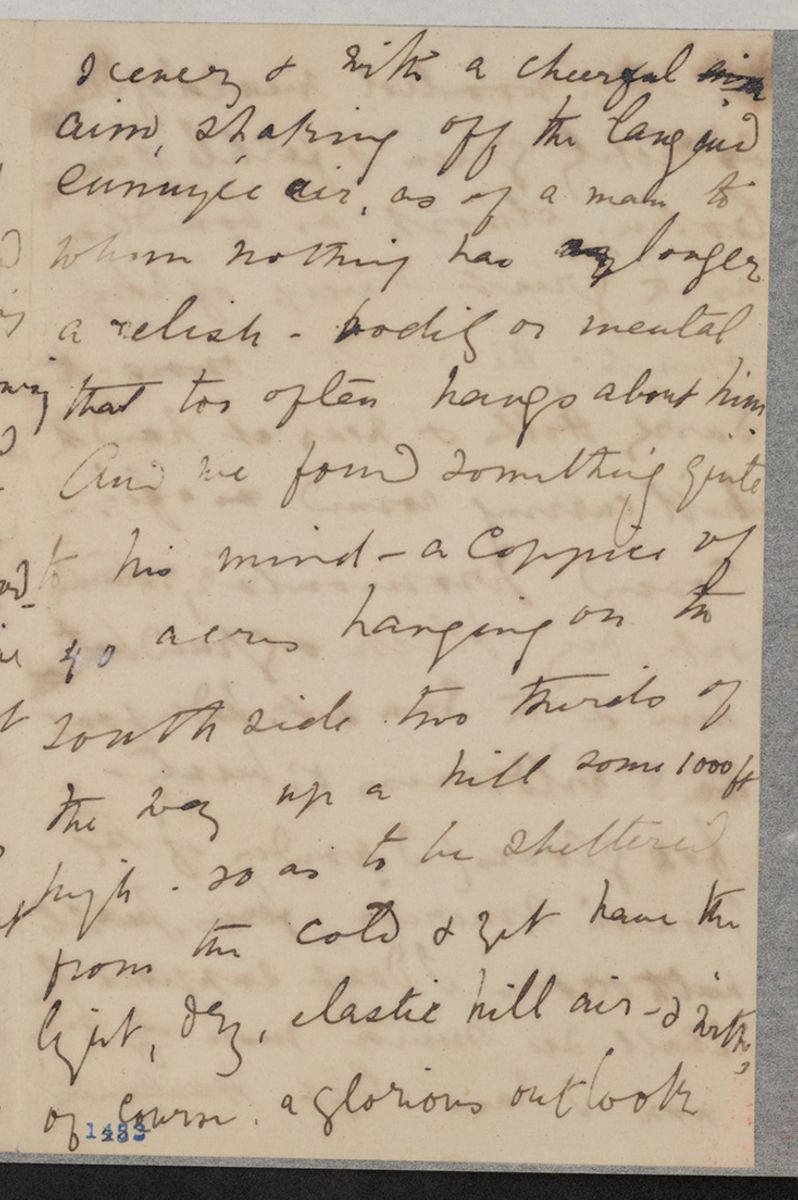 scenery & with a cheerful
aim, shaking off the languid
ennuyée air, as of a man to
whom nothing has longer
a relish - bodily or mental
that too often hangs about him
And we found something quite
to his mind - a coppice of
40 acres hanging on the
south side two thirds of
the way up a hill some 1000 ft
high - so as to be sheltered
from the cold & yet have the
light, dry, elastic hill air - & with,
of course, a glorious outlook